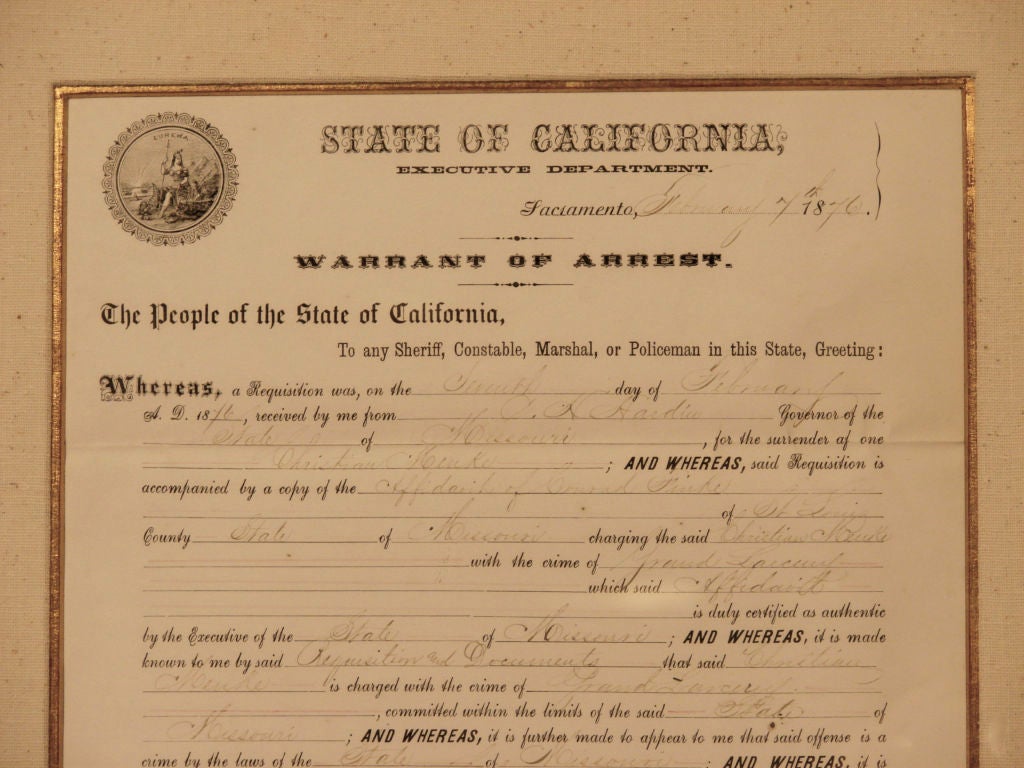 EUREKA
STATE OF CALIFORNIA,
EXECUTIVE DEPARTMENT.
Sacramento, February 7th 1876.
WARRANT OF ARREST.
The People of the State of California,
To any Sheriff, Constable, Marshal, or Policeman in this State, Greeting:
Whereas, a Requisition was, on the day of February
A. D. 1876, received by me from C. H. Hardin Governor of the
State of Missouri, for the surrender af one
Christian Menke ; AND WHEREAS, said Requisition is
accompanied by a copy of the Affidavit of Conrad
of St Louis
County State of Missouri charging the said Christian Menke
with the crime of Grand Larceny
which said Affidavit
is duly certified as authentic
by the Executive of the State of Missouri ; AND WHEREAS, it is made
known to me by said Requisition and Documents that said Christian
Menke is charged with the crime of Grand Larceny
, committed within the limits of the said State of
Missouri ; AND WHEREAS, it is further made to appear to me that said offense is a
crime by the laws of the State of Missouri ; AND WHEREAS, it is